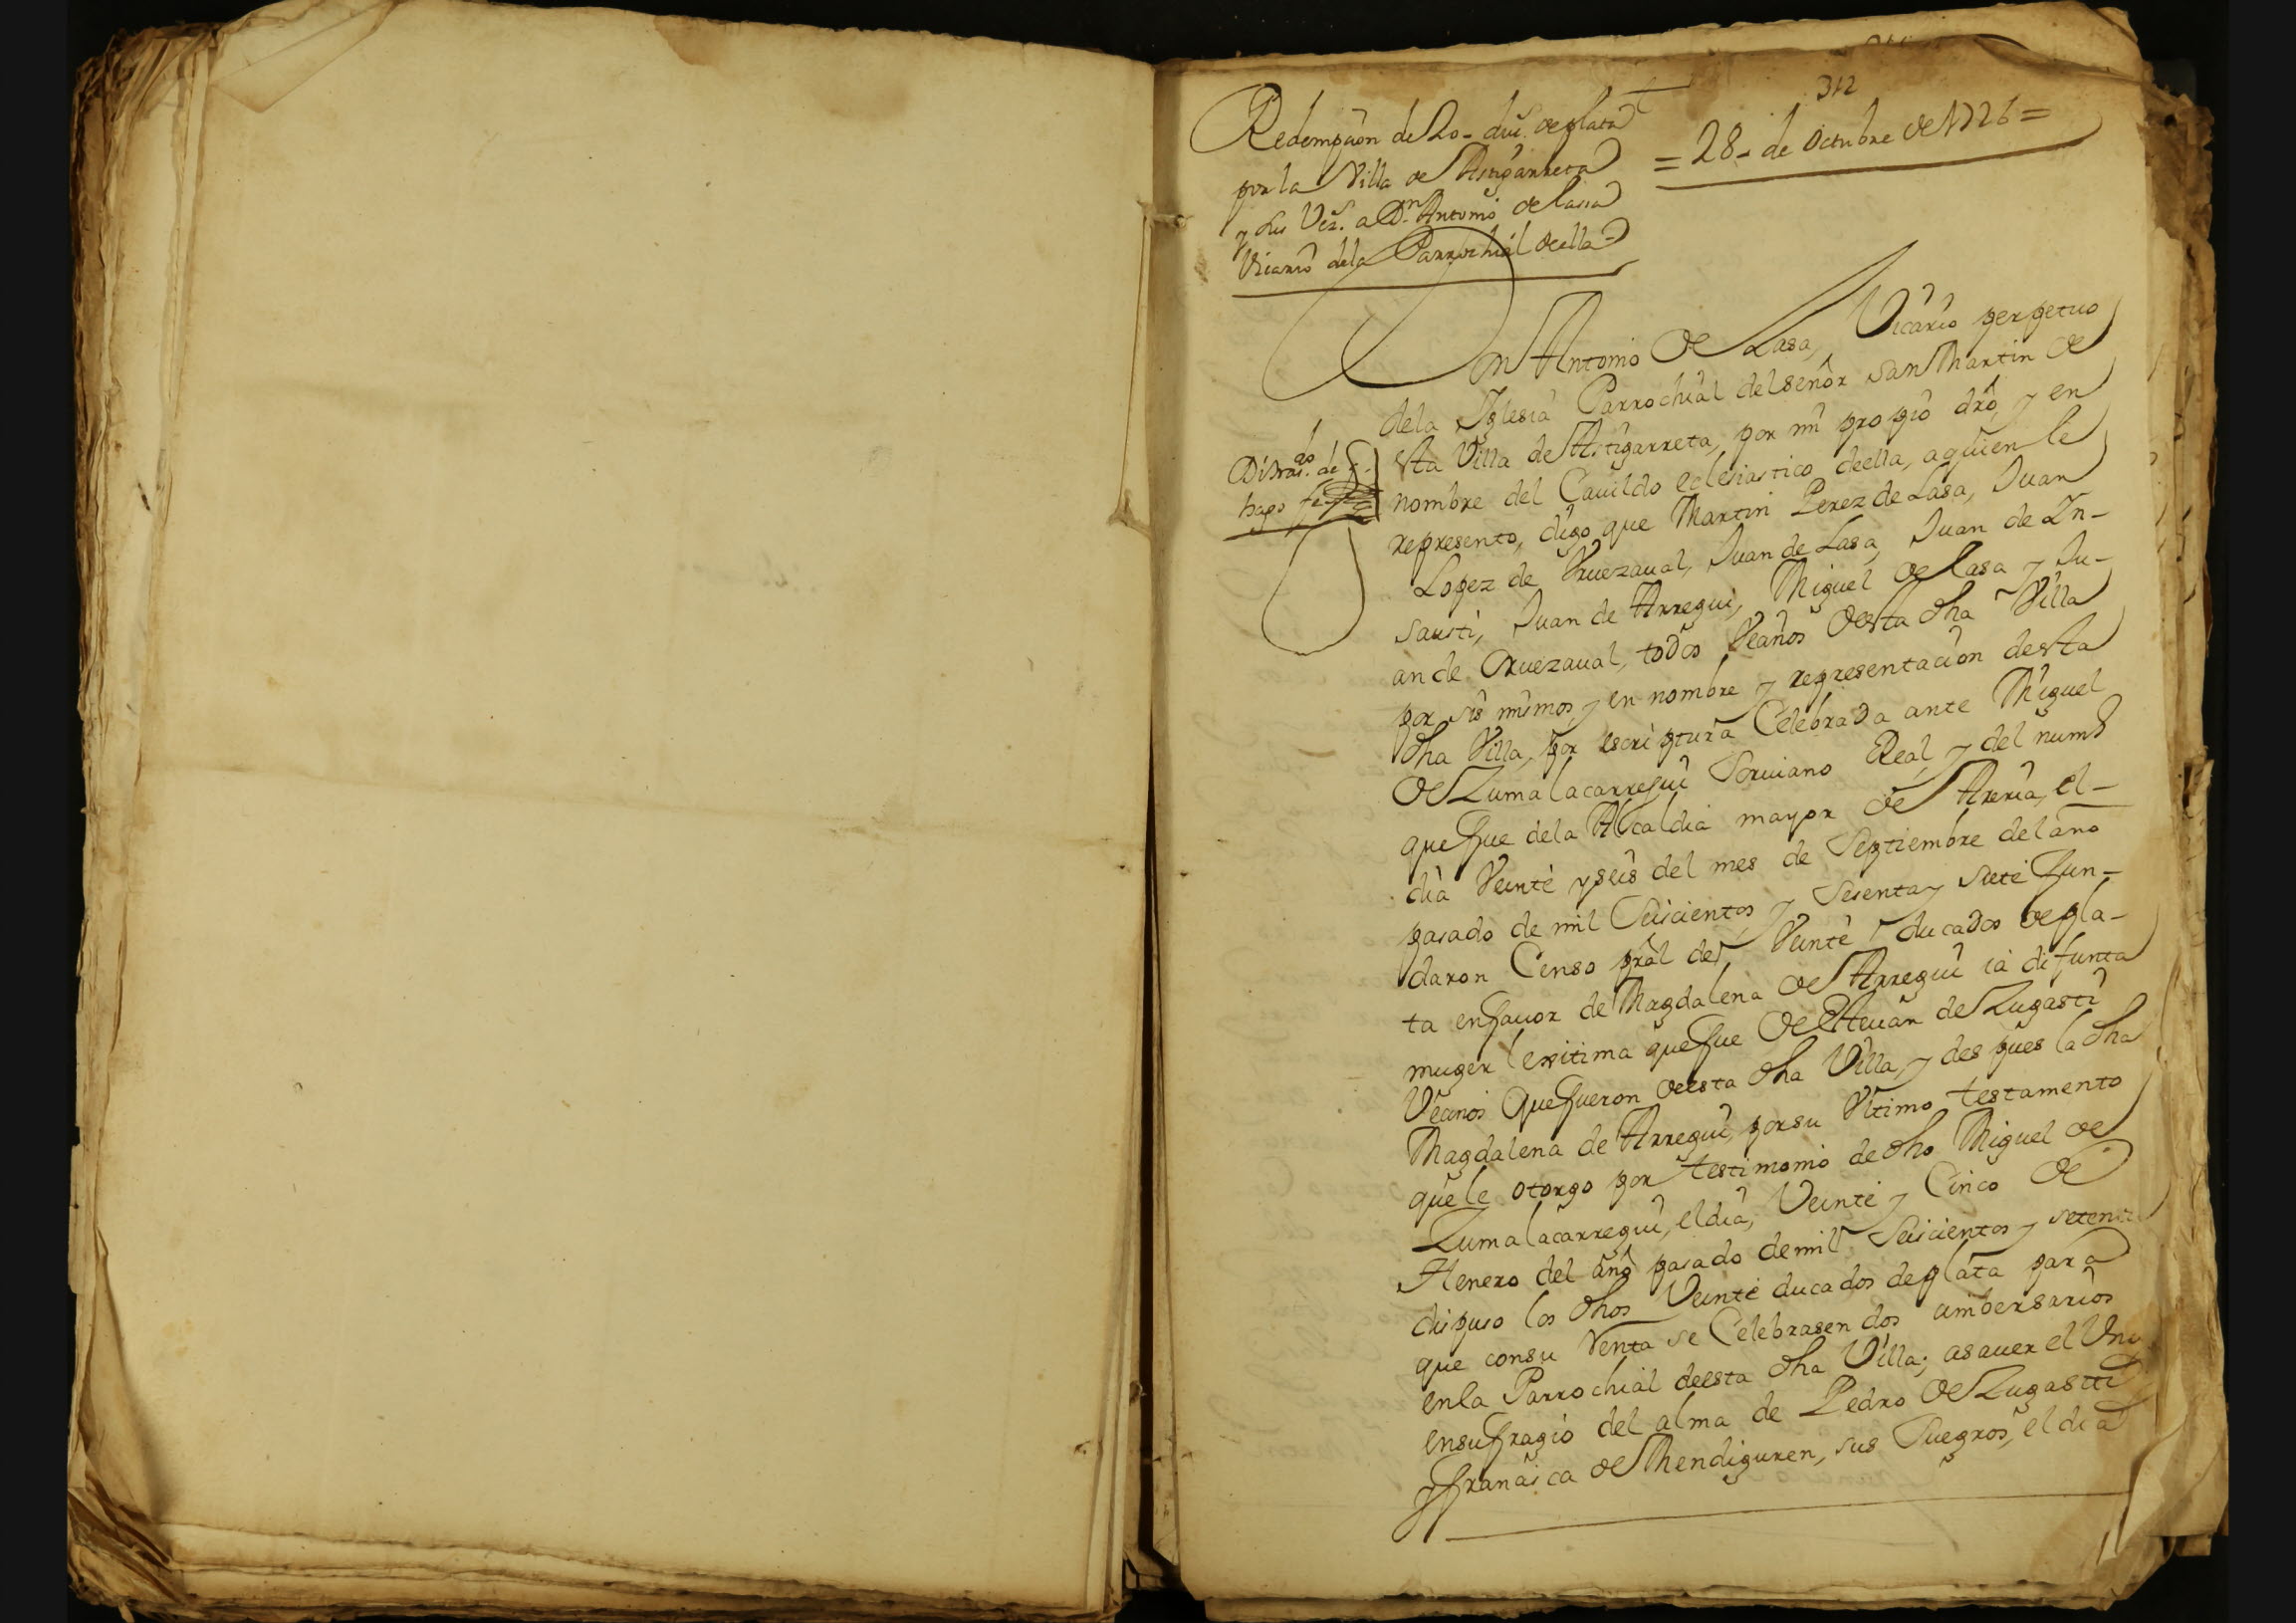 312
Redempçion de 20- duc.s de plata
por la Villa de Astigarreta
y sus Vez.s a Dn Antonio de lassa
Vicario dela Parrochial de ella =
= 28- de Octubre de 1726 =
Don Antonio de Lasa, Vicario perpetuo
dela Iglesia Parrochial del señor san Martin de
esta Villa de Astigarreta, por mi propio dro, y en
nombre del Cauildo eclesiastico deella, aquien le
represento, digo que Martin Perez de Lasa, Juan
Lopez de Oruezaual, Juan de Lasa, Juan de In-
sausti, Juan de Arregui, Miguel de Lasa y Ju-
an de Oruezaual, todos Veçinos desta dha Villa
por sis mismos, y en nombre y representacion desta
dha Villa, por escriptura Celebrada ante Miguel
de Zumalacarregui Scriuano Real, y del numo
que fue dela Alcaldia mayor de Areria, el-
dia Veinte y seis del mes de Septiembre del año
pasado de mil Seiscientos y Sesenta y siete fun-
daron Censo pral de Veinte ducados de pla-
ta enfauor de Magdalena de Arregui ia difunta
muger lexitima que fue de Esteuan de Lugasti
Veçinos que fueron deesta dha Villa, y despues la dha
Magdalena de Arregui, por su Vltimo testamento
que le otorgo por testimonio de dho Miguel de
Zumalacarregui, el dia, Veinte y Cinco de
Henero del año pasado de mil Seiscientos y setenta
dispuso los dhos Veinte ducados de plata para
que consu Renta se Celebrasen dos anibersarios
enla Parrochial deesta dha Villa; asauer el Vno
ensufragio del alma de Pedro de Lugastti
y françisca de Mendiguren, sus Suegros, el dia
hago fe